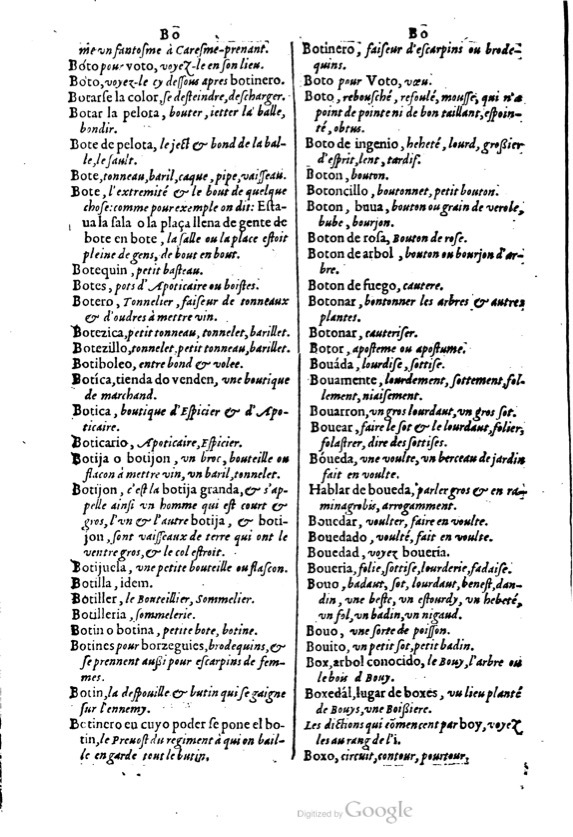 Bõ
me vn fantosme à Caresme-prenant.
Bóto pour voto, voyez-le en son lieu.
Bóto, voyez-le cy dessous apres botinero.
Botarse la color, se desteindre, descharger.
Botar la pelota, bouter, ietter la balle,
bondir.
Bote de pelota, le ject & bond de la bal-
le, le sault.
Bote, tonneau, baril, caque, pipe, vaisseau.
Bote, l'extremité & le bout de quelque
chose: comme pour exemple on dit: Esta-
ua la sala o la plaça llena de gente de
bote en bote, la salle ou la place estoit
pleine de gens, de bout en bout.
Botequin, petit basteau.
Botes, pots d'Apoticaire ou boistes.
Botero, Tonnelier, faiseur de tonneaux
& d'oudres à mettre vin.
Botezica, petit tonneau, tonnelet, barillet.
Botezillo, tonnelet, petit tonneau, barillet.
Botiboleo, entre bond & volee.
Botíca, tienda do venden, vne boutique
de marchand.
Botica, boutique d'Espicier & d'Apo-
ticaire.
Boticario, Apoticaire, Espicier.
Botija o botijon, vn broc, bouteille ou
flacon à mettre vin, vn baril, tonnelet.
Botijon, c'est la botija granda, & s'ap-
pelle ainsi vn homme qui est court &
gros, l'vn & l'autre botija, & boti-
jon, sont vaisseaux de terre qui ont le
ventre gros, & le col estroit.
Botijuela, vne petite bouteille ou flascon.
Botilla, idem.
Botiller, le Bouteillier, Sommelier.
Botilleria, sommelerie.
Botin o botina, petite bote, botine.
Botines pour borzeguies, brodequins, &
se prennent aussi pour escarpins de fem-
mes.
Botin, la despouille & butin qui se gaigne
sur l'ennemy.
Botinero en cuyo poder se pone el bo-
tin, le Preuost du regiment à qui on bail-
le en garde tout le butin.
Bõ
Botinero, faiseur d'escarpins ou brode-
quins.
Boto pour Voto, vœu.
Boto, rebousché, refoulé, mousse, qui n'a
point de pointe ni de bon taillant, espoin-
té, obtus.
Boto de ingenio, heheté, lourd, grossier
d'esprit, lent, tardif.
Boton, bouton.
Botoncillo, boutonnet, petit bouton.
Boton, buua, bouton ou grain de verole,
bube, bourjon.
Boton de rosa, Bouton de rose.
Boton de arbol, bouton ou bourjon d'ar-
bre.
Boton de fuego, cautere.
Botonar, bontonner les arbres & autres
plantes.
Botonar, cauteriser.
Botor, aposteme ou apostume.
Bouáda, lourdise, sottise.
Bouamente, lourdement, sottement, fol-
lement, niaisement.
Bouarron, vn gros lourdaut, vn gros sot.
Bouear, faire le sot & le lourdaut, folier,
folastrer, dire des sottises.
Bóueda, vne voulte, vn berceau de jardin
fait en voulte.
Hablar de boueda, parler gros & en ra-
minagrobis, arrogamment.
Bouedar, voulter, faire en voulte.
Bouedado, voulté, fait en voulte.
Bouedad, voyez boueria.
Boueria, folie, sottise, lourderie, fadaise.
Bouo, badaut, sot, lourdaut, benest, dan-
din, vne beste, vn estourdy, vn hebeté,
vn fol, vn badin, vn nigaud.
Bouo, vne sorte de poisson.
Bouito, vn petit sot, petit badin.
Box, arbol conocido, le Bouy, l'arbre ou
le bois d Bouy.
Boxedál, lugar de boxes, vn lieu planté
de Bouys, vne Boissiere.
Les dictions qui cõmencent par boy, voyez
les au rang de l'i.
Boxo, circuit, contour, pourtour,
Digitized by Google